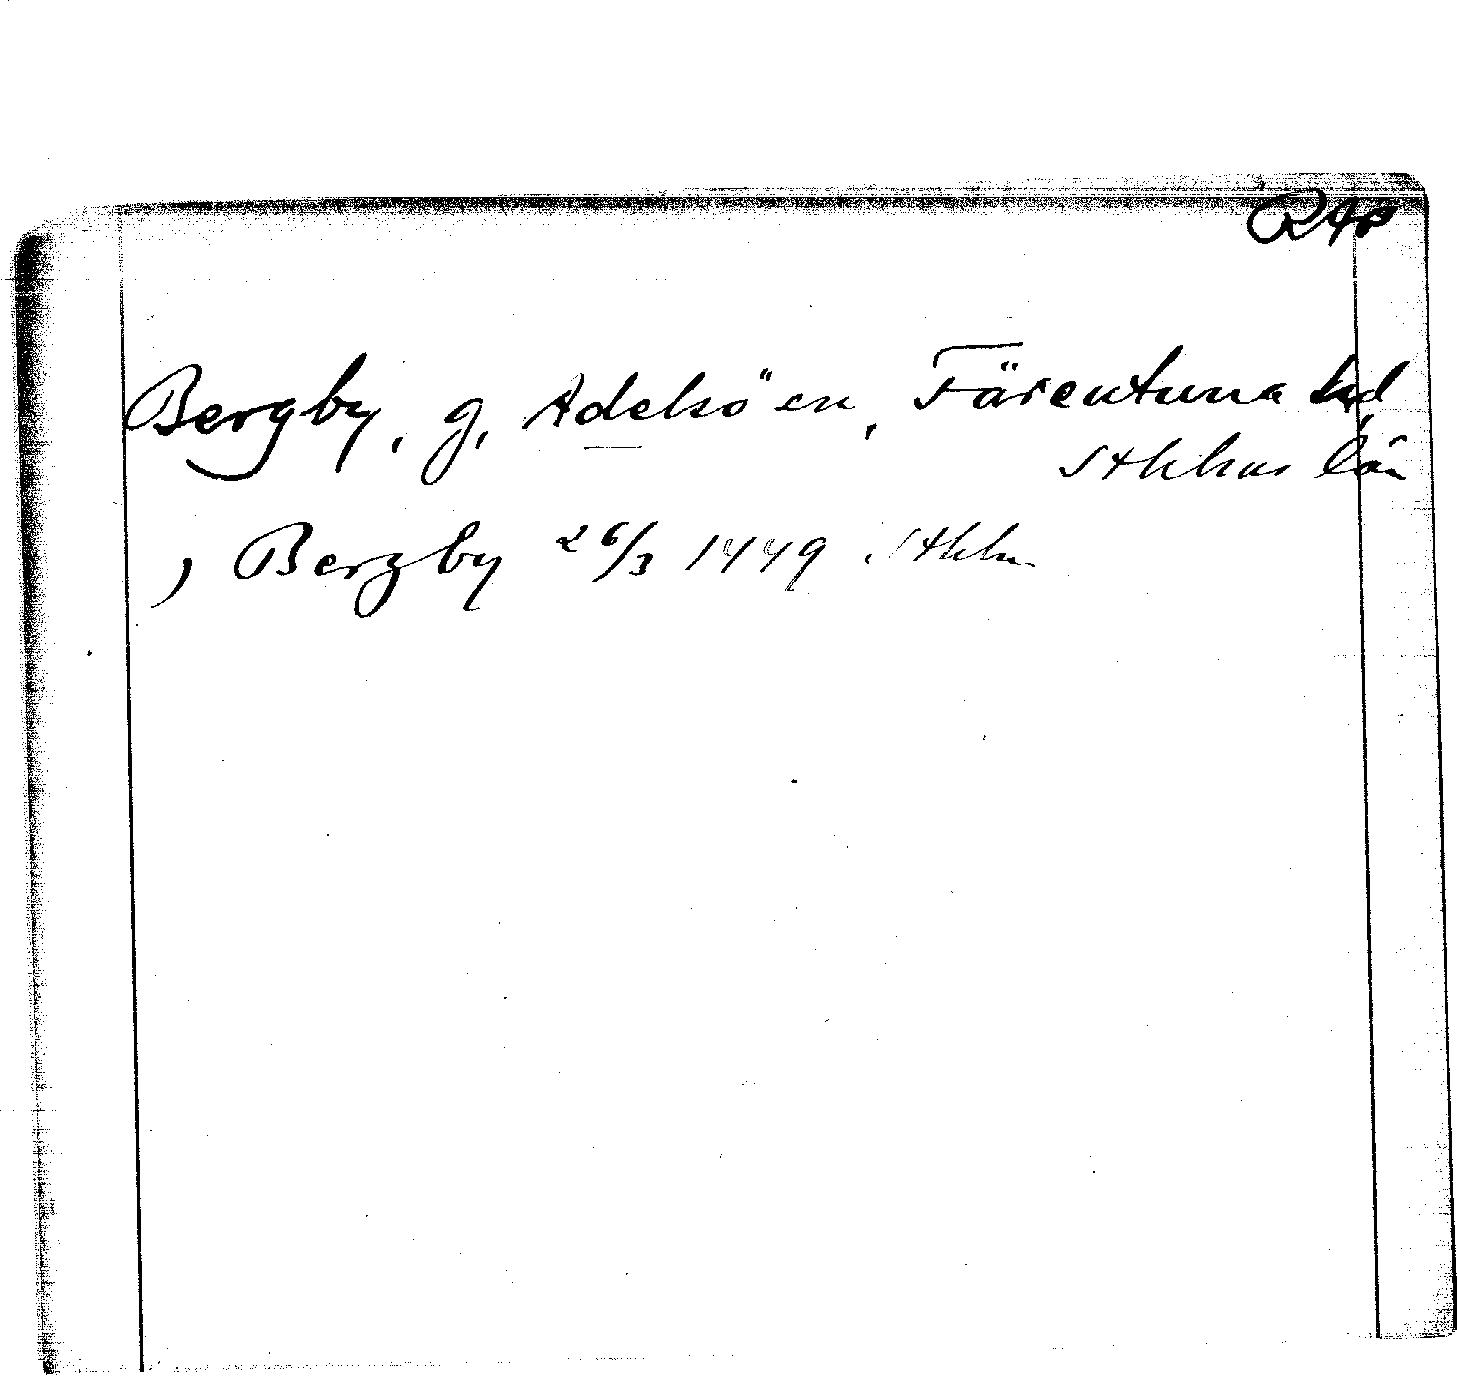 RAp
Bergby, g, Adelsö en, Färentuna hd
Sthlms län
) Bergby 26/3 1449 Sthlm